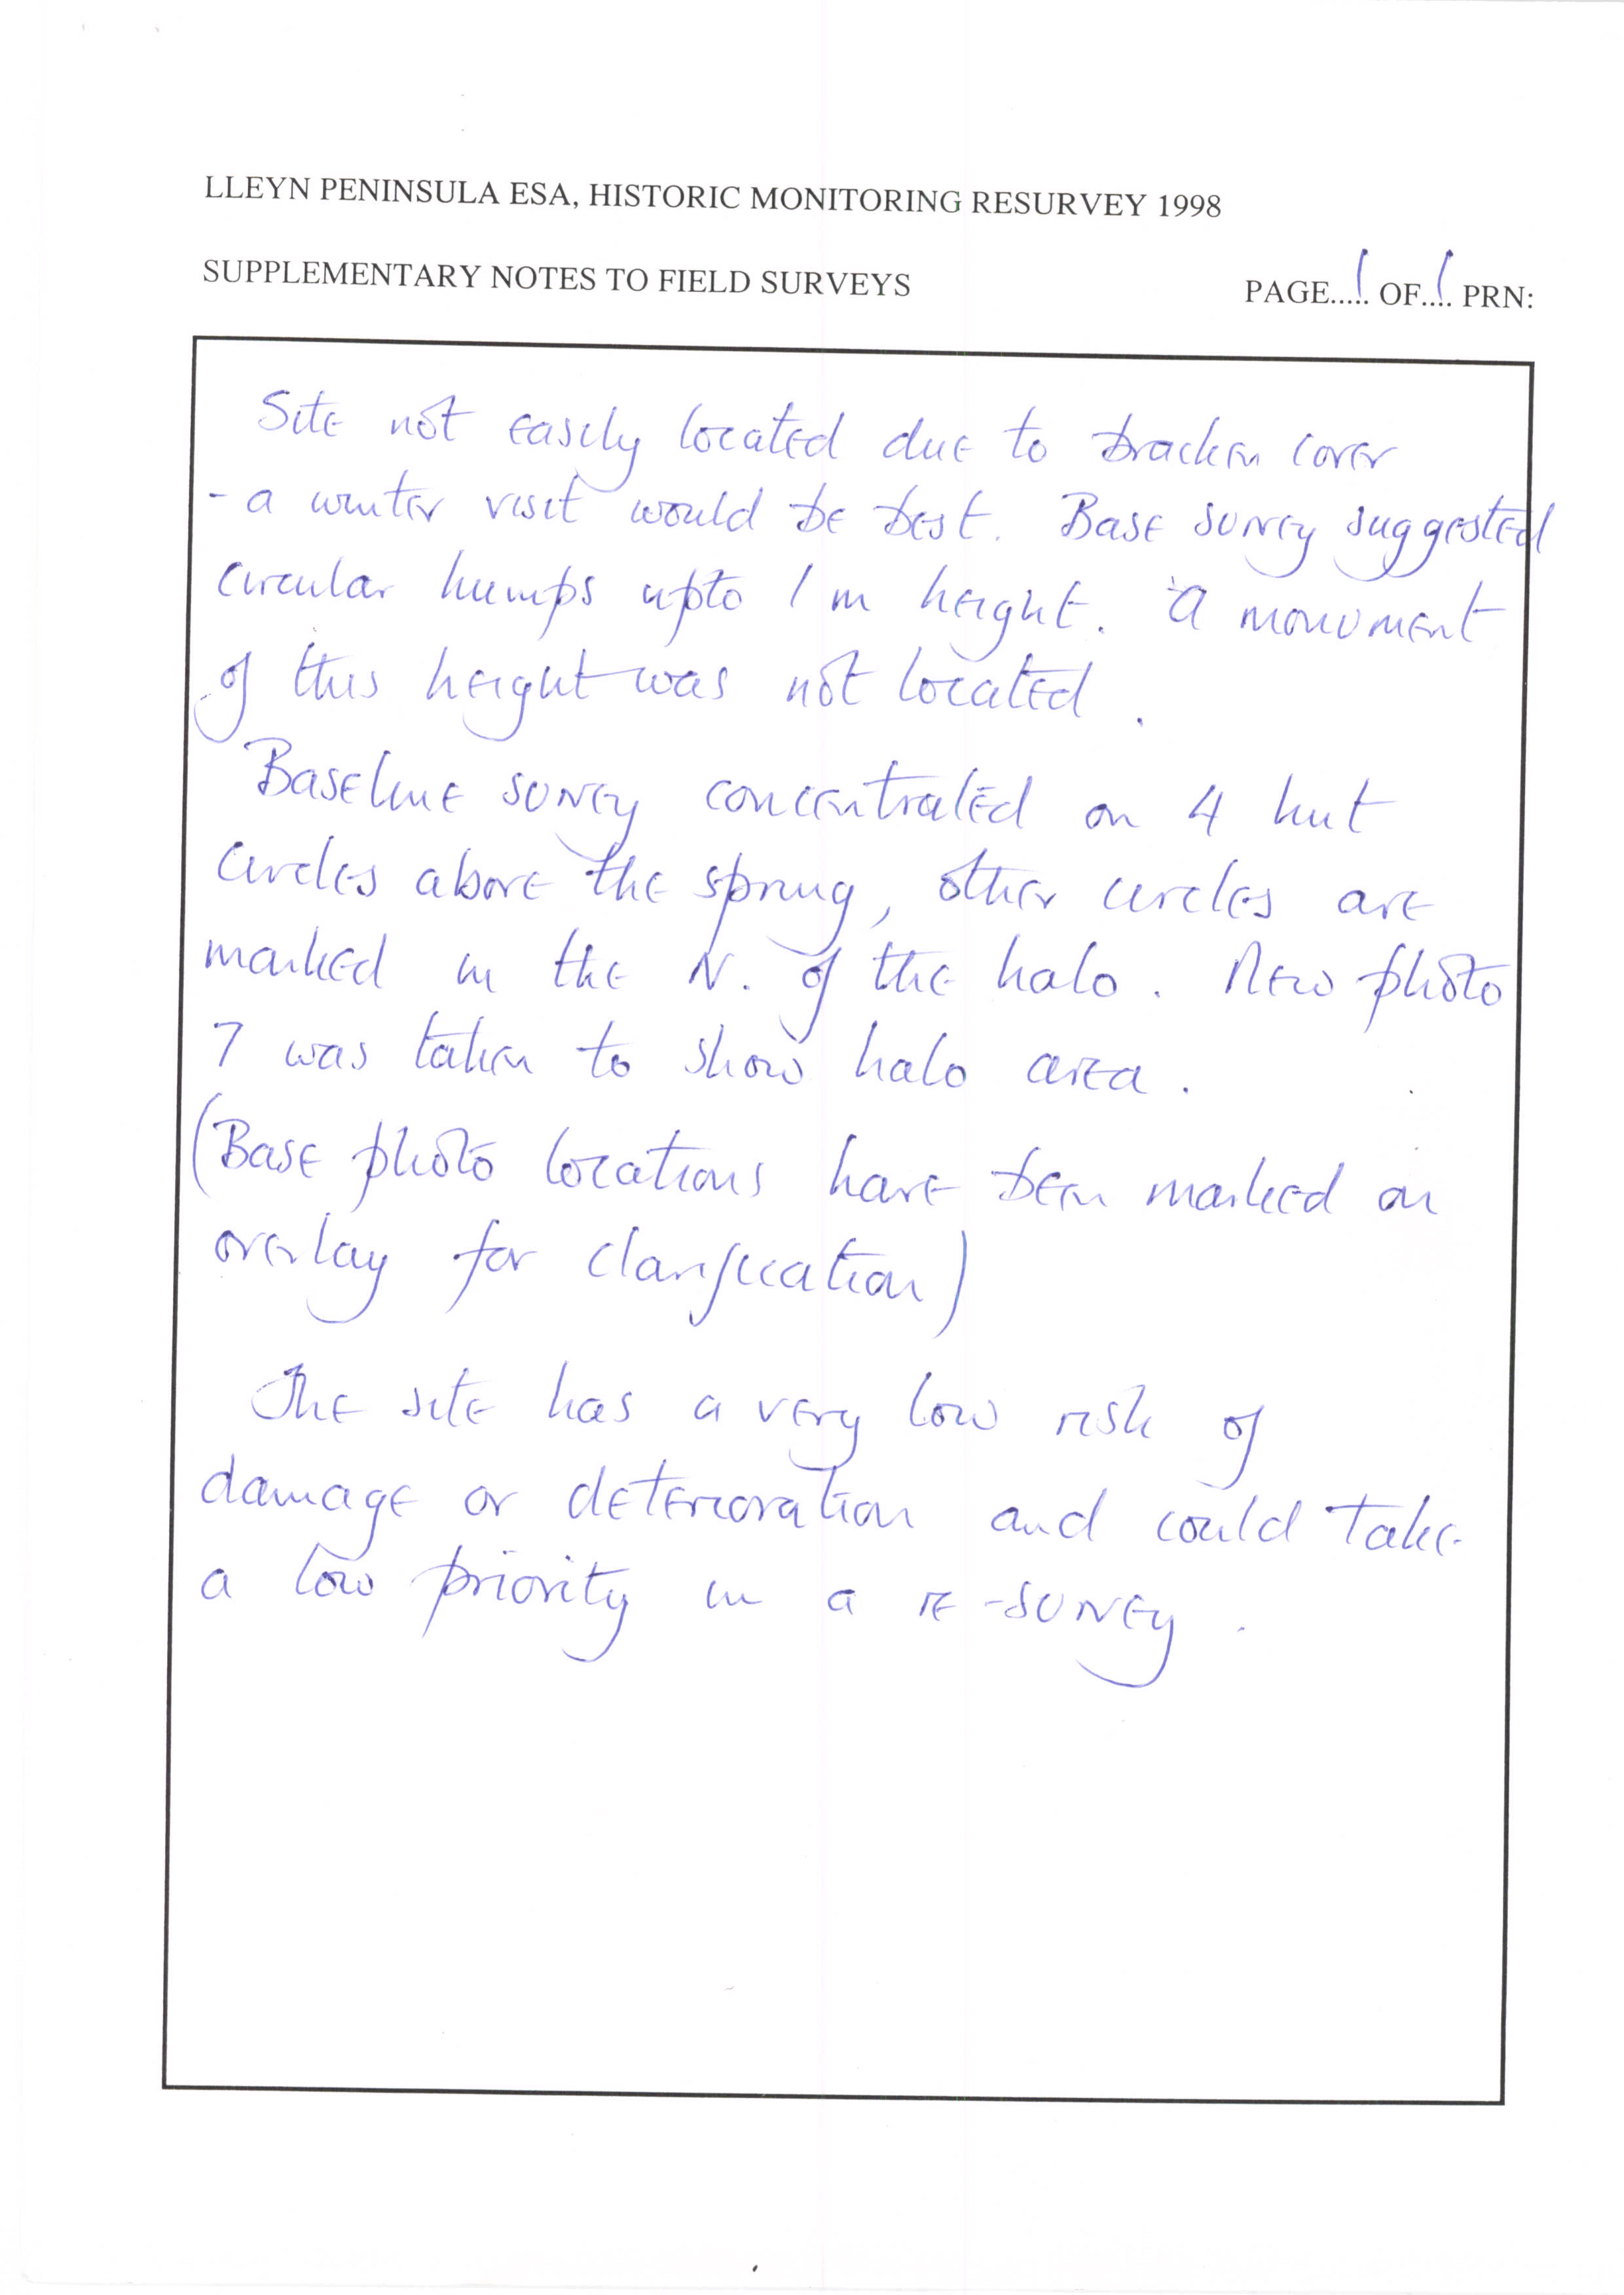 LLEYN PENINSULA ESA, HISTORIC MONITORING RESURVEY 1998
SUPPLEMENTARY NOTES TO FIELD SURVEYS PAGE..1.. OF..1.. PRN:
Site not easily located due to bracken cover
- a winter visit would be best. Base survey suggested
circular humps upto 1m height. A monument
of this height was not located.
Baseline survey concentrated on 4 hut
circles above the spring, other circles are
marked in the N. of the halo. New photo
7 was taken to show halo area.
(Base photo locations have been marked on
overlay for clarification)
The site has a very low risk of
damage or deterioration and could take
a low priority in a re-survey.